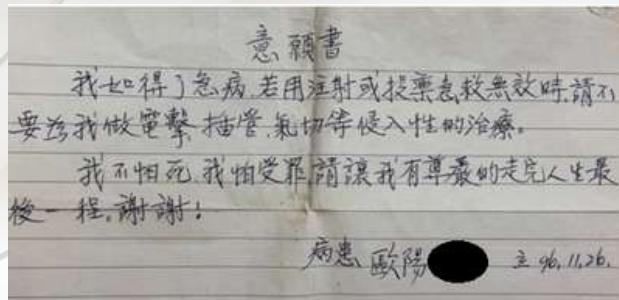 意願書
我如得了急病,若用注射或投藥急救無效時,請不
要為我做電擊、插管、氣切等侵入性的治療。
我不怕死,我怕受罪,請讓我有尊嚴的走完人生最
後一程,謝謝!
病患 歐陽 立 96.11.26.